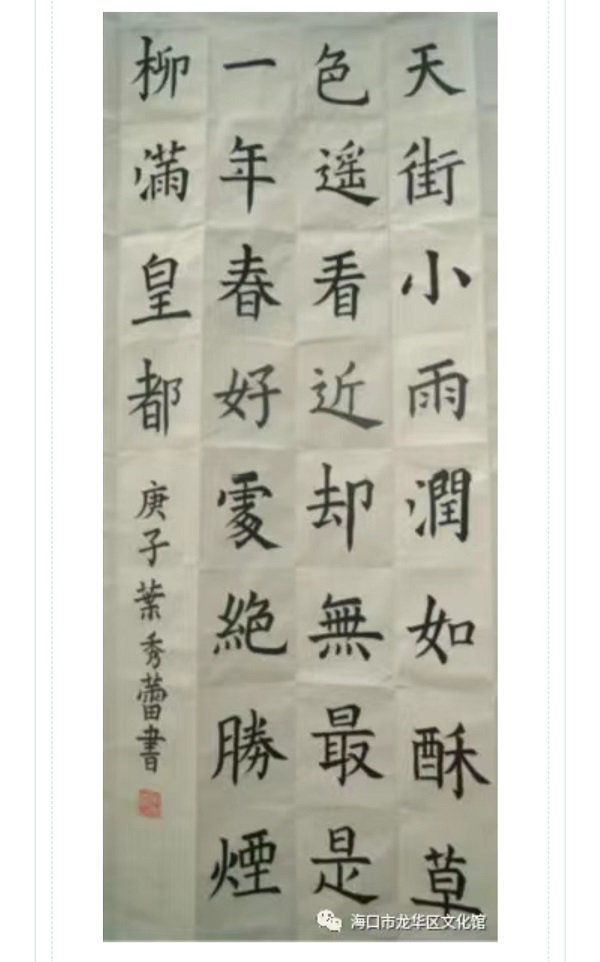 天街小雨潤如酥草
色遥看近却無最是
一年春好處絶勝煙
柳滿皇都
庚子葉秀蕾書
海口市龙华区文化馆